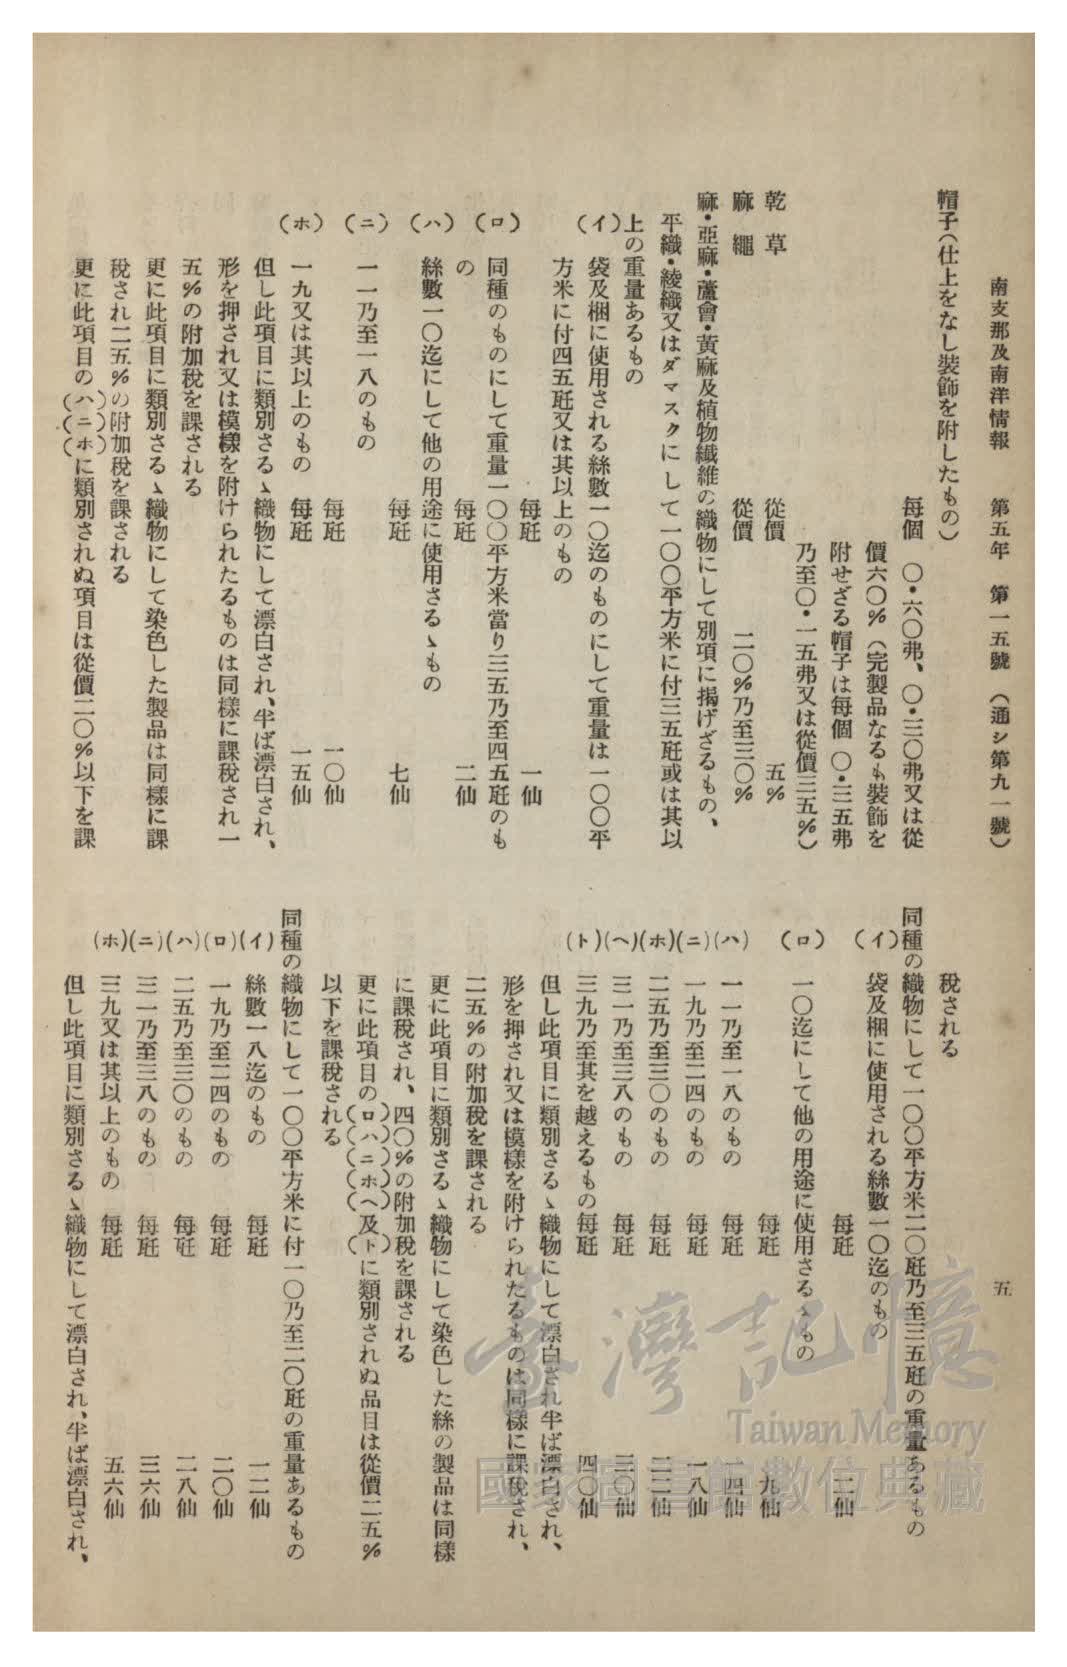 南支那及南洋情報　第五年　第一五號　(通シ第九一號)
五
帽子(仕上をなし裝飾を附したもの)
每個　〇・六〇弗、〇・三〇弗又は從
價六〇%(完製品なるも裝飾を
附せざる帽子は每個〇・三五弗
乃至〇・一五弗又は從價三五%)
乾草　從價　五%
麻繩　從價　二〇%乃至三〇%
麻・亞麻・蘆會・黃麻及植物纖維の織物にして別項に揭げざるもの、
平織・綾織又はダマスクにして一〇〇平方米に付三五瓩或は其以
上の重量あるもの
(イ)袋及梱に使用される絲數一〇迄のものにして重量は一〇〇平
方米に付四五瓩又は其以上のもの
每瓩　一仙
(ロ)同種のものにして重量一〇〇平方米當り三五乃至四五瓩のも
の　每瓩　二仙
(ハ)絲數一〇迄にして他の用途に使用さるゝもの
每瓩　七仙
(ニ)一一乃至一八のもの
每瓩　一〇仙
(ホ)一九又は其以上のもの　每瓩　一五仙
但し此項目に類別さるゝ織物にして漂白され、半ば漂白され、
形を押され又は模樣を附けられたるものは同樣に課稅され一
五%の附加稅を課される
更に此項目に類別さるゝ織物にして染色した製品は同樣に課
稅され二五%の附加稅を課される
更に此項目の(ハ)(ニ)(ホ)に類別されぬ項目は從價二〇%以下を課
稅される
同種の織物にして一〇〇平方米二〇瓩乃至三五瓩の重量あるもの
(イ)袋及梱に使用される絲數一〇迄のもの
每瓩　二仙
(ロ)一〇迄にして他の用途に使用さるゝもの
每瓩　九仙
(ハ)一一乃至一八のもの　每瓩　一四仙
(ニ)一九乃至二四のもの　每瓩　一八仙
(ホ)二五乃至三〇のもの　每瓩　二二仙
(ヘ)三一乃至三八のもの　每瓩　三〇仙
(ト)三九乃至其を越えるもの每瓩　四〇仙
但し此項目に類別さるゝ織物にして漂白され半ば漂白され、
形を押され又は模樣を附けられたるものは同樣に課稅され、
二五%の附加稅を課される
更に此項目に類別さるゝ織物にして染色した絲の製品は同樣
に課稅され、四〇%の附加稅を課される
更に此項目の(ロ)(ハ)(ニ)(ホ)(ヘ)及(ト)に類別されぬ品目は從價二五%
以下を課稅される
同種の織物にして一〇〇平方米に付一〇乃至二〇瓩の重量あるもの
(イ)絲數一八迄のもの　每瓩　一二仙
(ロ)一九乃至二四のもの　每瓩　二〇仙
(ハ)二五乃至三〇のもの　每瓩　二八仙
(ニ)三一乃至三八のもの　每瓩　三六仙
(ホ)三九又は其以上のもの　每瓩　五六仙
但し此項目に類別さるゝ織物にして漂白され、半ば漂白され、
臺灣記憶
Taiwan Memory
國家圖書館數位典藏